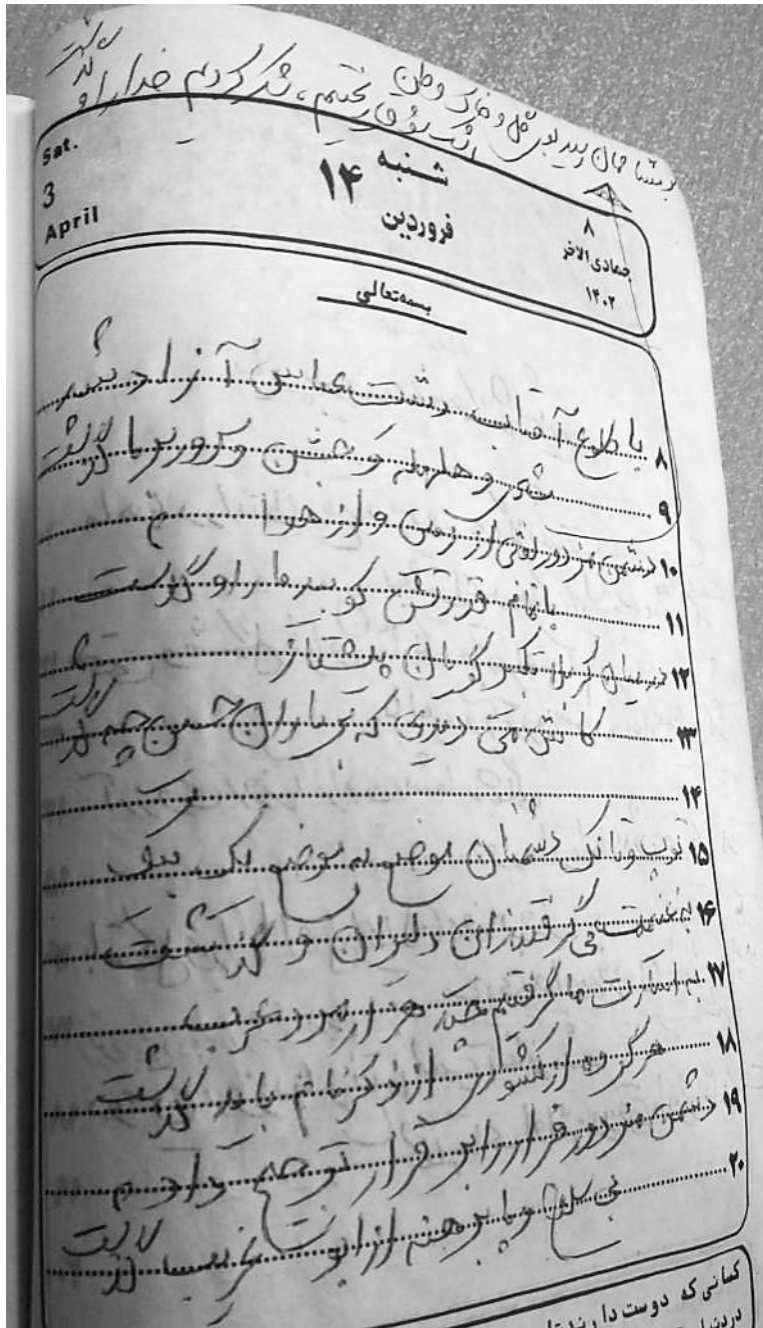 بر مشام جان رسید بوی گل و خاک وطن
اشک شوق ریختیم، شکر کردیم خدا را و گذشت
Sat.
3
April
شنبه
۱۴
فروردین
۸
جمادی‌الاخر
۱۴۰۲
بسمه‌تعالی
۸ با طلوع آفتاب دشت عباس آزاد شد
۹ شادی و هلهله و جشن و سرور بر ما گذشت
۱۰ دشمن مزدور از زمین و از هوا
۱۱ با تمام قدرتش کوبید ما را و گذشت
۱۲ در میان کربلا تکبیر گویان پیشتاز
۱۳ کاش می دیدی که بی یاران حسین چه گذشت
۱۴
۱۵ توپ و تانک دشمنان موضع به موضع یک به یک
۱۶ به غنیمت می گرفتند آن دلیران و گذشت
۱۷ به اسارت ما گرفتیم چند هزار مرد عرب
۱۸ هر گروه از کشوری از ذکرنامم باید گذشت
۱۹ دشمن مزدور فرار را بر قرار ترجیح داد
۲۰ بی سلاح و پا برهنه از ابو غریب گذشت
کسانی که دوست دارند